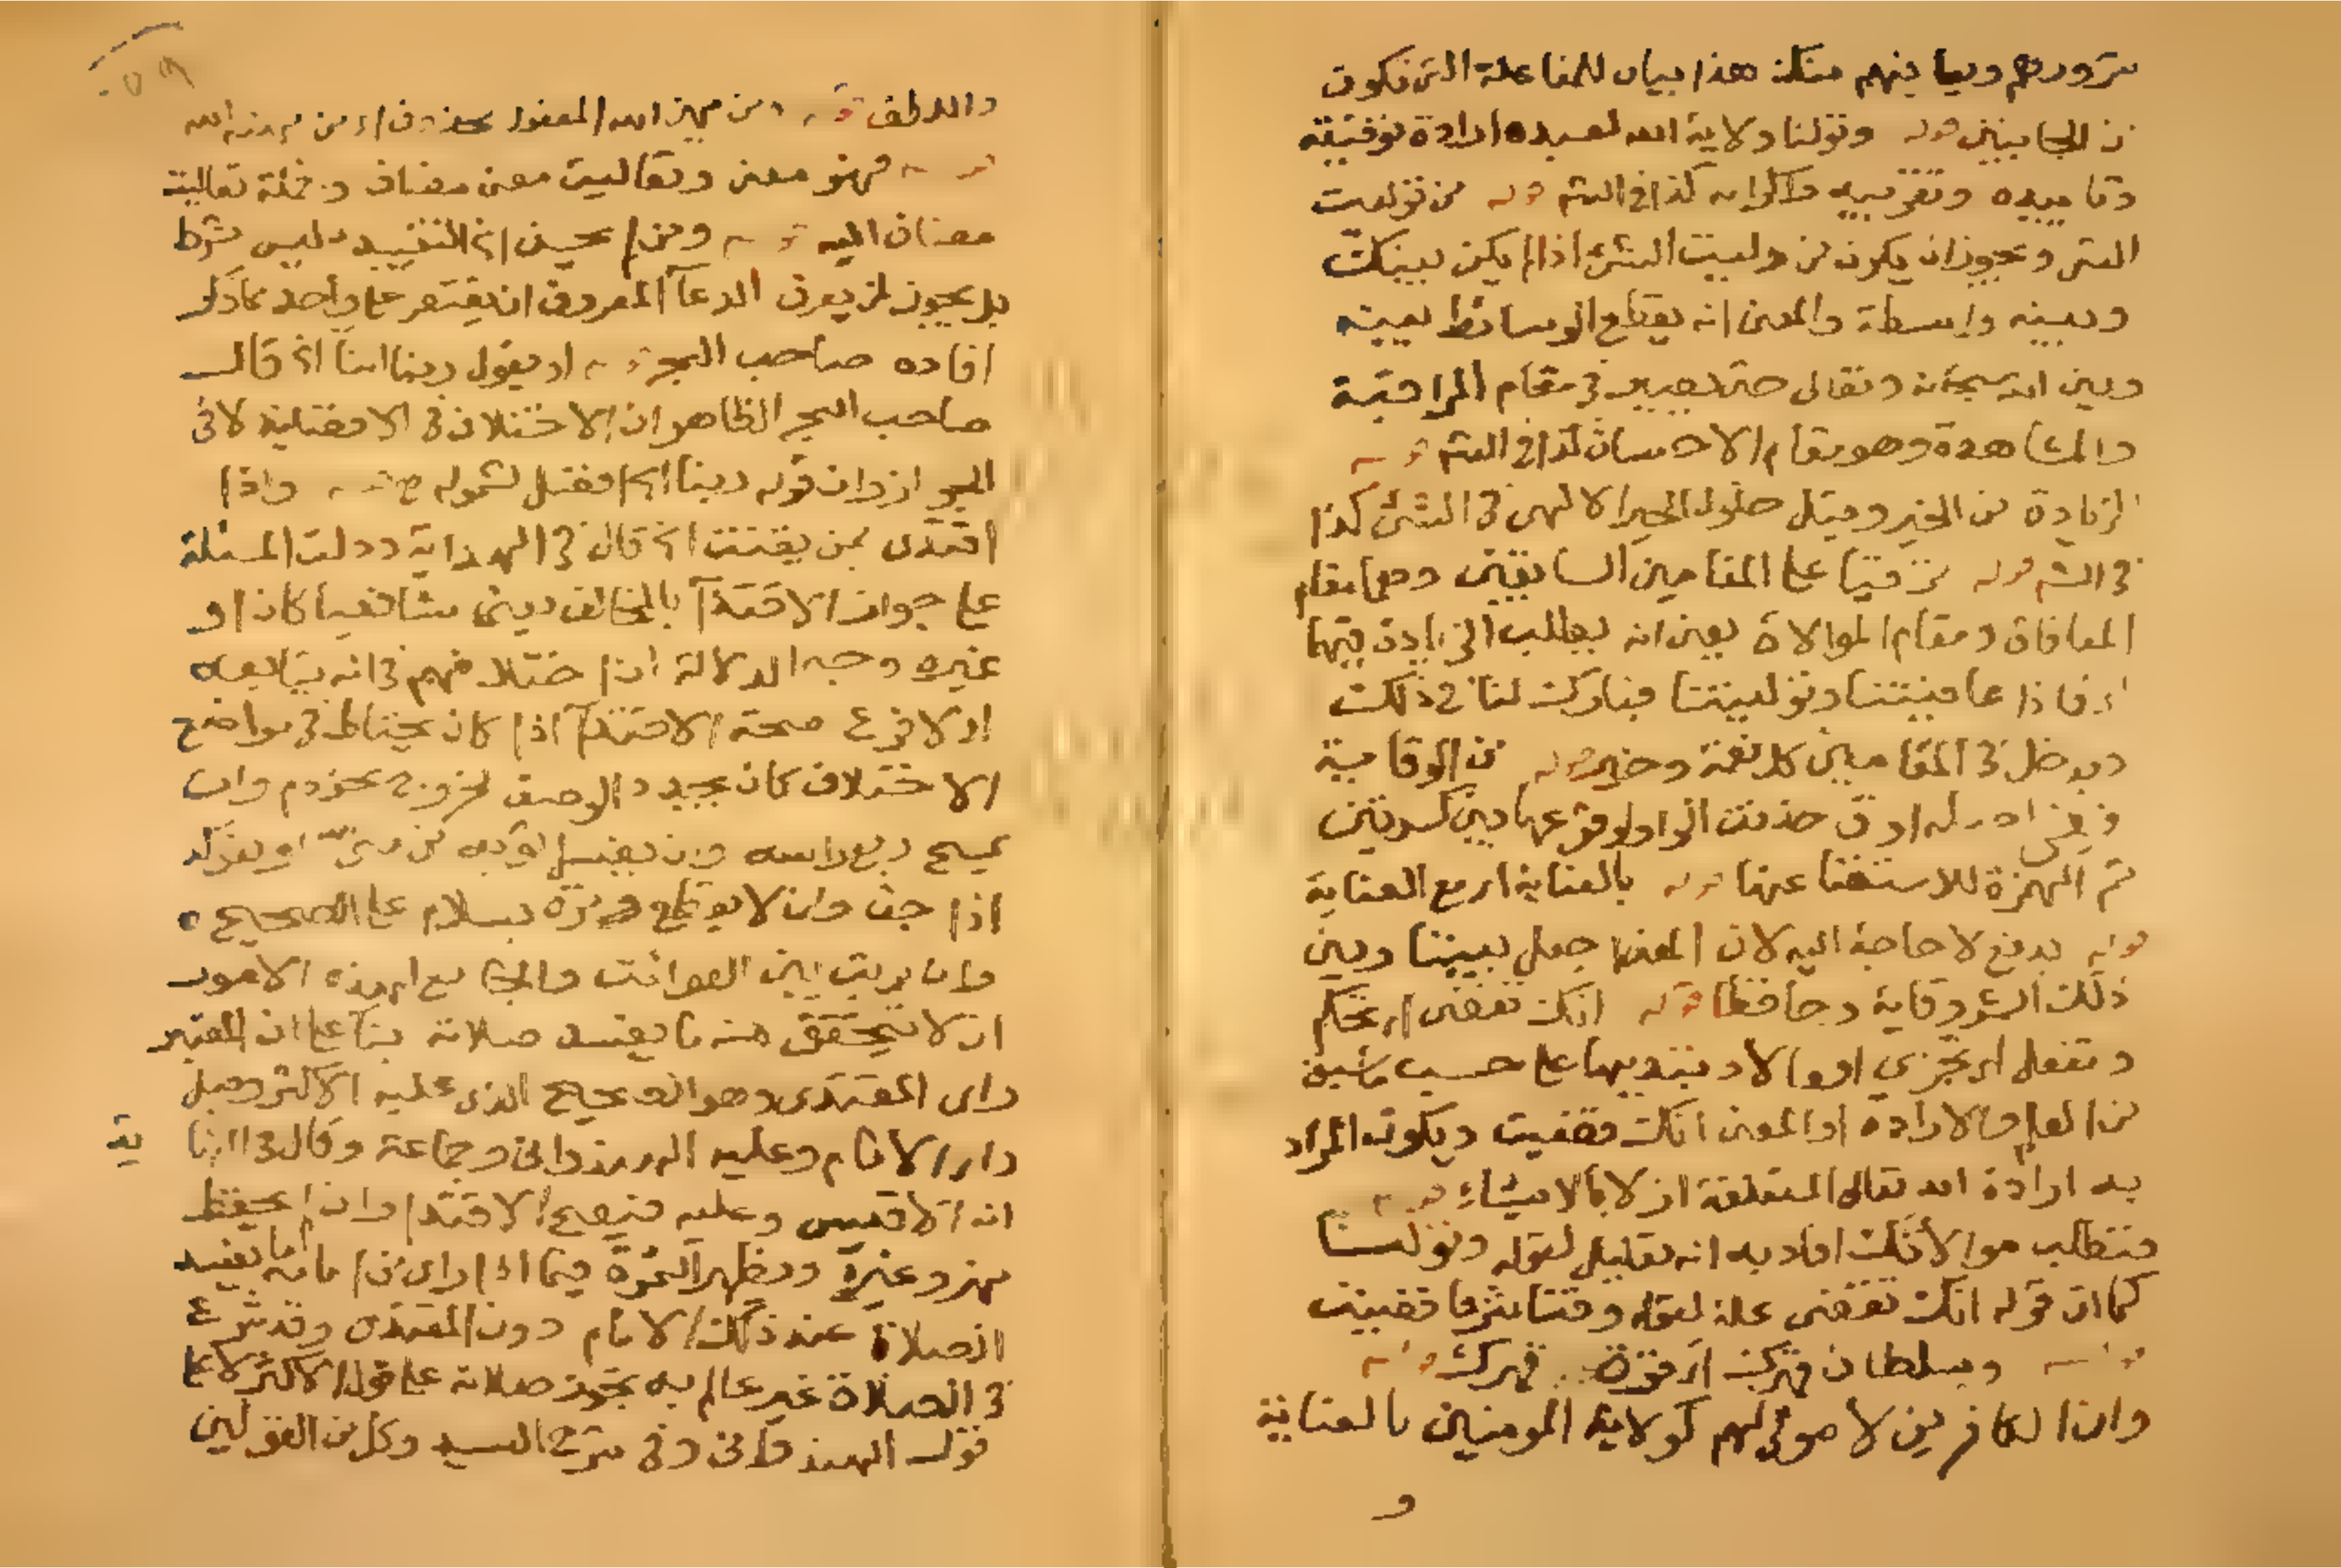 شرورهم ويعافيهم منك هذا بيان للمفاعلة التي تكون
من الجانبين قوله وتولنا ولاية الله لعبده ارادة توفيقه
وتاييده وتقريبه واكرامه كذا في الشر قوله من توليت
الشر ويجوز ان يكون من وليت الشئ اذا لم يكن بينك
وبينه واسطة والمعنى انه يقطع الوسائط بينه
وبين الله سبحانه وتعالى حتى يصير في مقام المراقبة
والمشاهدة وهو مقام الاحسان كذا في الشر قوله
الزيادة من الخير وقيل حلول الخير الالهي في الشئ كذا
في الشر قوله ترقيا على المقامين السابقين وهما مقام
المعافاة ومقام الموالاة يعني انه يطلب الزيادة فيهما
اي فاذا عافيتنا وتوليتنا فبارك لنا في ذلك
ويدخل في المقامين كل نعمة وخير قوله من الوقاية
حذفت الواو لوقوعها بين كسرتين
ثم الهمزة للاستغنا عنها قوله بالعناية اي مع العناية
قوله بدفع لا حاجة اليه لان المعنى اجعل بيننا وبين
ذلك الشر وقاية وحافظا قوله انك تقضي اي تحكم
وتفعل اي تجزي على حسب ما سبق
من العلم والارادة او المعنى انك قضيت ويكون المراد
به ارادة الله تعالى المتعلقة ازلا بالاشياء قوله
فنطلب موالاتك افاد به انه تعليل لقوله وتولنا
كما ان قوله انك تقضي علة لقوله وقنا شر ما قضيت
قوله وبسلطان قهرك اي قوة قهرك قوله
وان الكافرين لا مولى لهم كولاية المومنين بالعناية
و
واللطف قوله ومن يهن الله المفعول محذوف اي من يهنه الله
قوله فهو معنى وتعاليت معنى مضاف وجملة تعاليت
مضاف اليه قوله ومن لم يحسن الخ التقييد ليس بشرط
بل يجوز لمن يعرف الدعآ المعروف ان يقتصر على واحد مما ذكر
افاده صاحب البحر قوله او يقول ربنا اتنا الخ قال
صاحب البحر الظاهر ان الاختلاف في الافضلية لا في
الجواز وان قوله ربنا الخ افضل لشموله قوله واذا
اقتدى بمن يقنت الخ قال في الهداية ودلت المسئلة
على جواز الاقتدآ بالمخالف يعني شافعيا كان او
غيره وجه الدلالة ان اختلافهم في انه يتابعه
او لا فرع صحة الاقتدآ اذا كان يحتاط في مواضع
الاختلاف كان يجدد الوضوء لخروج نحو دم وان
يمسح ربع راسه وان يغسل ثوبه من منى او يفركه
اذا جف وان لا يقطع وتره بسلام على الصحيح
وان يرتب بين الفوائت والجامع لهذه الامور
ان لا يتحقق منه ما يفسد صلاته بنآ على ان المعتبر
راى المقتدى وهو الصحيح الذى عليه الاكثر وقيل
راى الامام وعليه الهندوانى وجماعة وقال في النها
ية
انه الاقيس وعليه فيصح الاقتدا وان لم يحتط
وتظهر الثمرة فيما اذا راى من امامه ما يفسد
الصلاة عند ذلك الامام دون المقتدى وقد شرع
في الصلاة غير عالم به تجوز صلاته على قول الاكثر لا على
قول الهندوانى وفى شرح السيد وكل من القولين